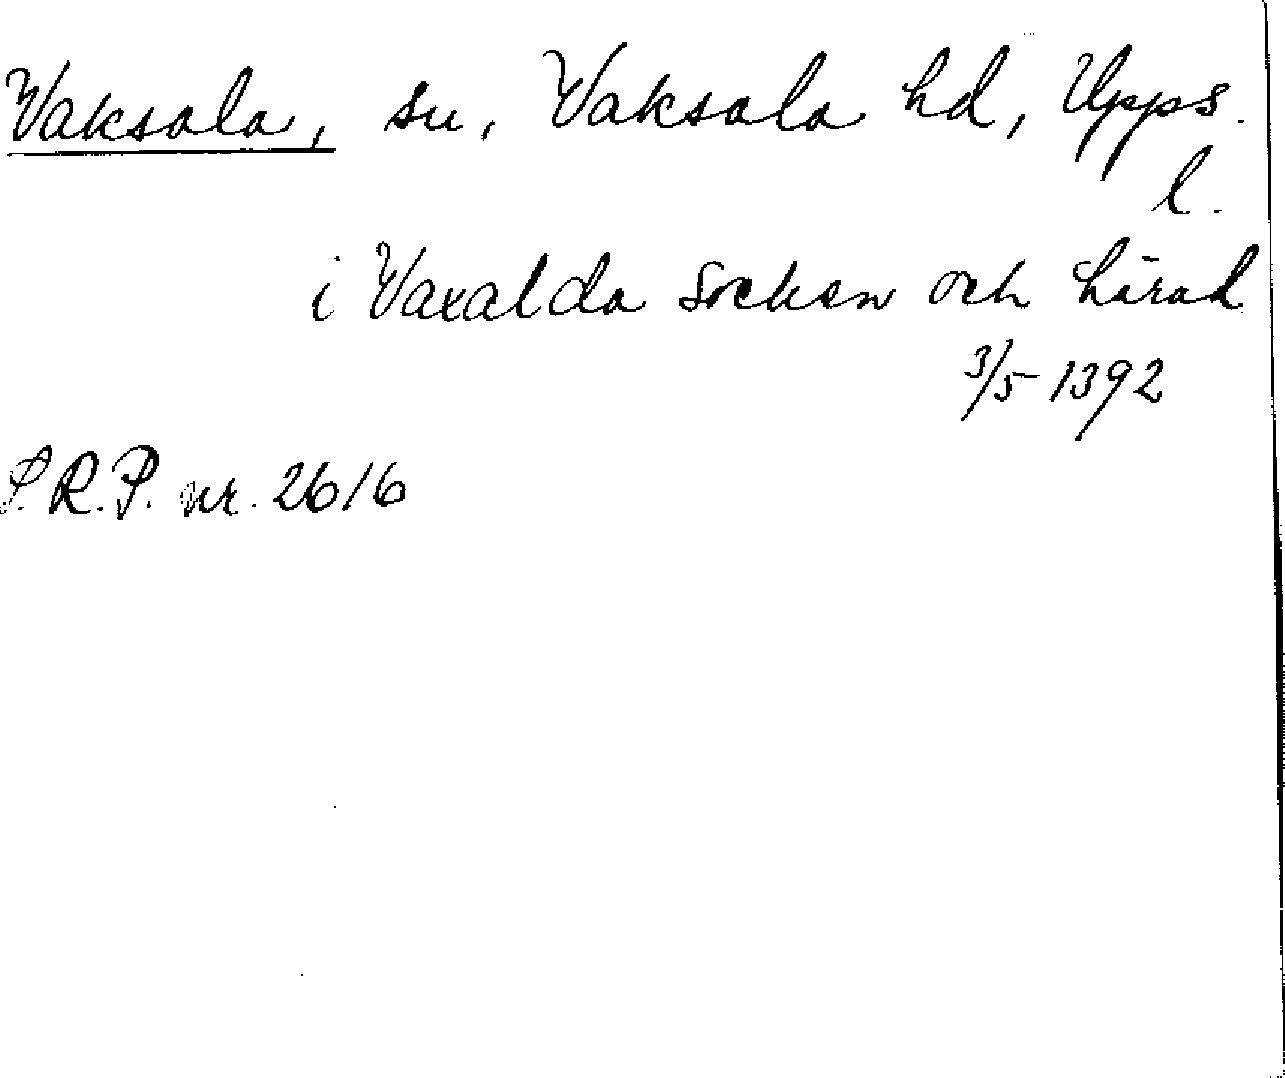 Vaksala, sn, Vaksala hd, Upps.
l.
i Vaxalda socken och härad
3/5 1392
S.R.P. nr. 2616